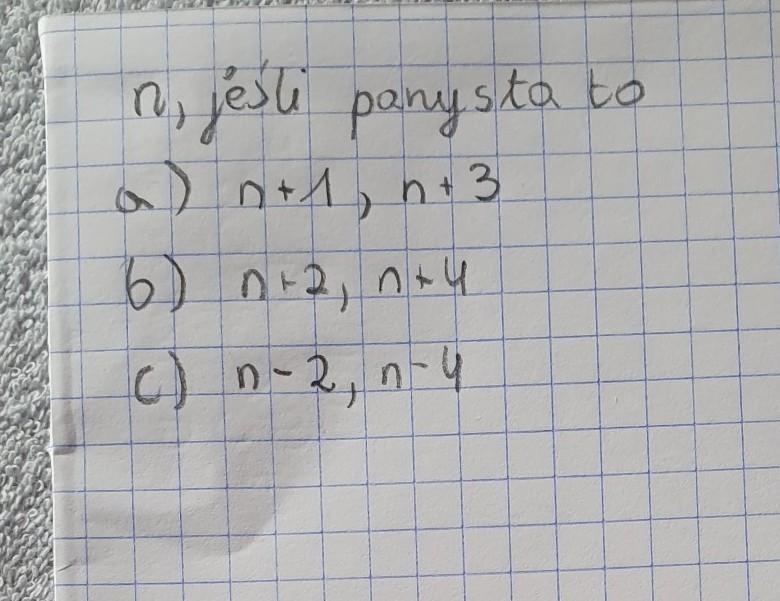 n, jeśli parzysta to
a) n+1, n+3
b) n+2, n+4
c) n-2, n-4